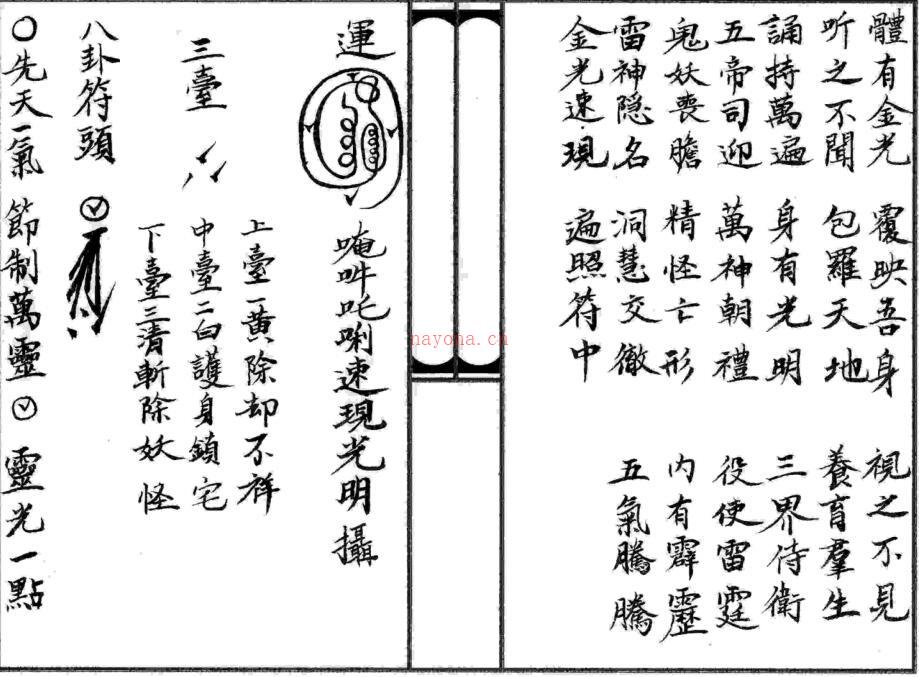 體有金光 覆映吾身 視之不見
听之不聞 包羅天地 養育羣生
誦持萬遍 身有光明 三界侍衛
五帝司迎 萬神朝禮 役使雷霆
鬼妖喪膽 精怪亡形 內有霹靂
雷神隠名 洞慧交徹 五氣騰騰
金光速現 遍照符中
運 唵吽吒唎速現光明攝
三臺
上臺一黃除却不祥
中臺二白護身鎖宅
下臺三清斬除妖怪
八卦符頭
○先天一氣 節制萬靈 靈光一點
nayona.cn